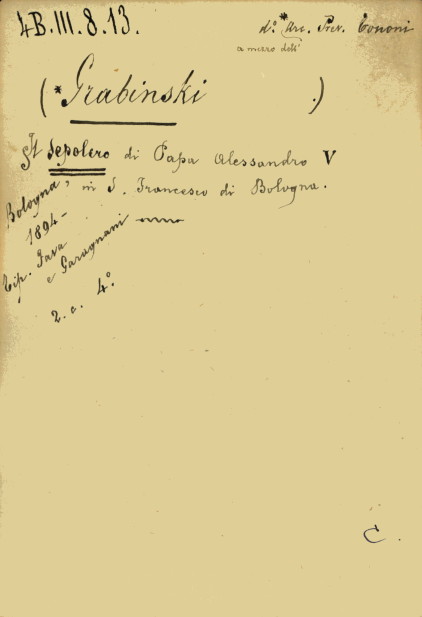 4B.III.8.13.
d.º *Arc. Prev. Tononi
a mezzo dell'
(*Grabinski .)
Il Sepolcro di Papa Alessandro V
in S. Francesco di Bologna.
Bologna,
1894 -
Tip. Fava
e Garagnani
2. c. 4.º
C.